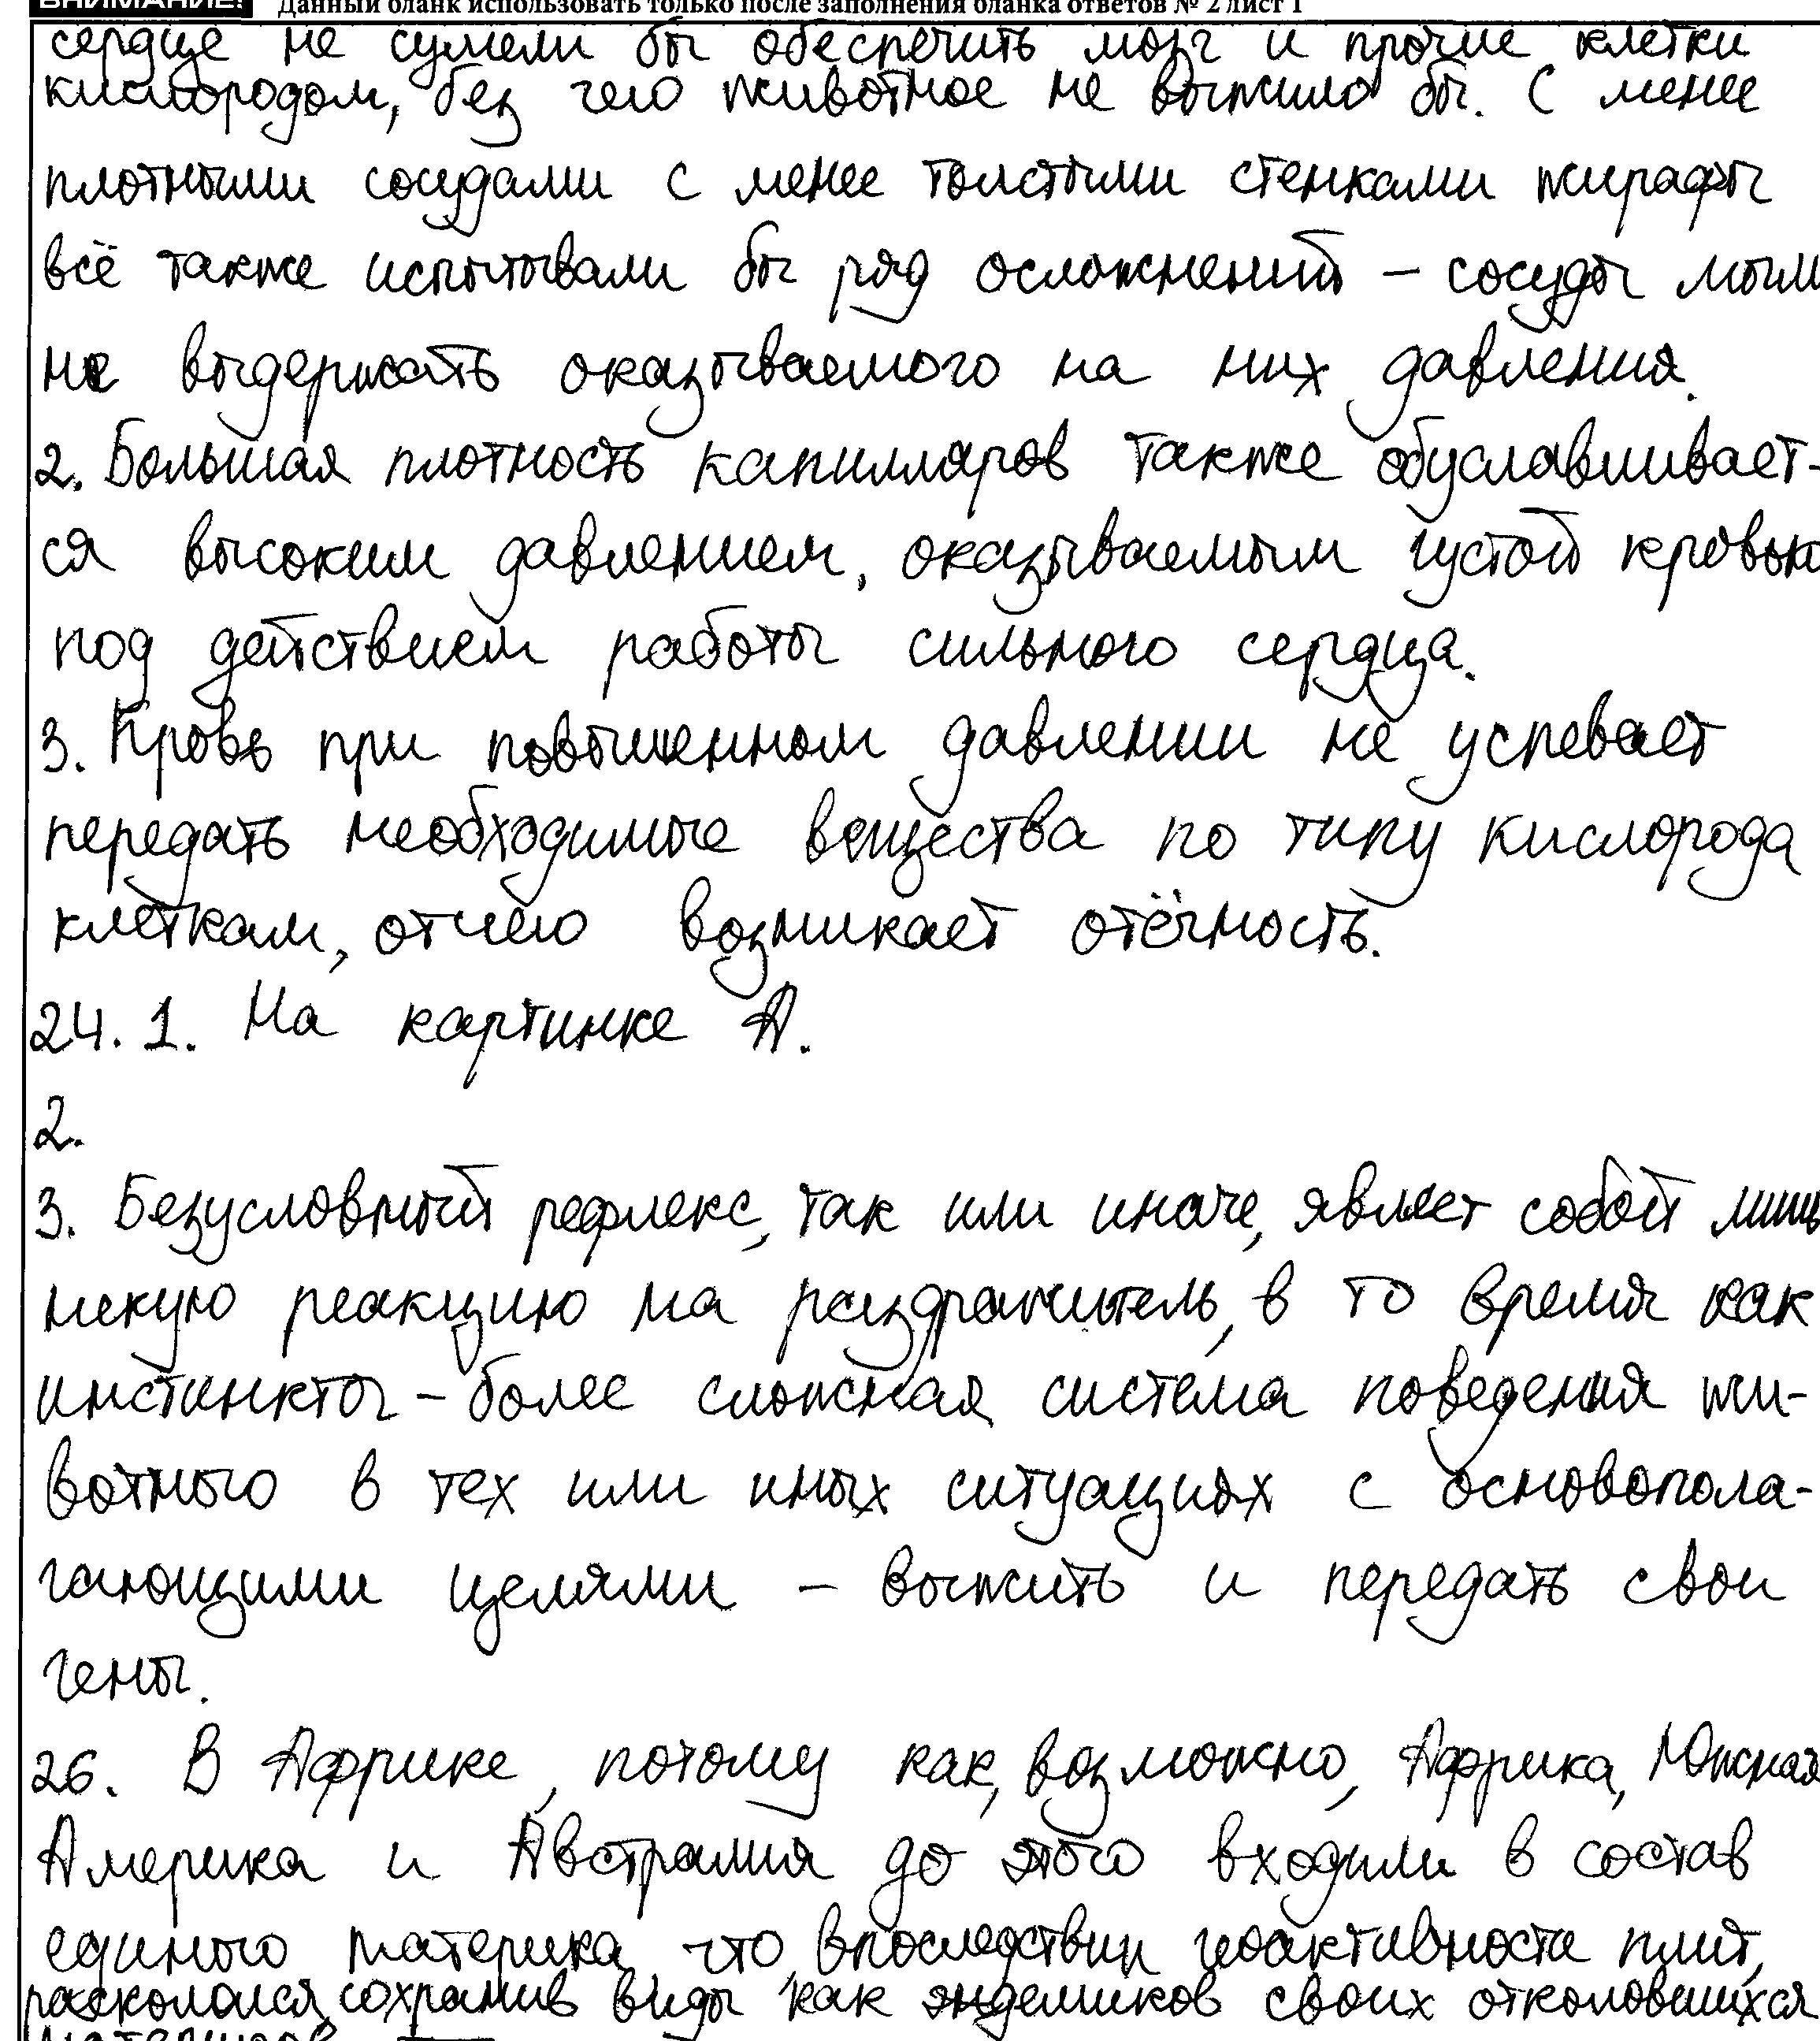 ВНИМАНИЕ! Данный бланк использовать только после заполнения бланка ответов № 2 лист 1
сердце не сумели бы обеспечить мозг и прочие клетки
кислородом, без чего животное не выжило бы. С менее
плотными сосудами с менее толстыми стенками жирафы
всё также испытывали бы ряд осложнений – сосуды
не выдержать оказываемого на них давления.
2. Большая плотность капилляров также обуславливает-
ся высоким давлением, оказываемым густой кровью
под действием работы сильного сердца.
3. Кровь при повышенном давлении не успевает
передать необходимые вещества по типу кислорода
клеткам, отчего возникает отёчность.
24. 1. На картинке А.
2.
3. Безусловный рефлекс, так или иначе, являет собой лишь
некую реакцию на раздражитель, в то время как
инстинкты – более сложная система поведения жи-
вотного в тех или иных ситуациях с основопола-
гающими целями – выжить и передать свои
гены.
26. В Африке, потому как, возможно, Африка, Южная
Америка и Австралия до этого входили в состав
единого материка, что впоследствии геоактивности плит,
раскололся, сохранив виды как эндемиков своих отколовшихся
материков